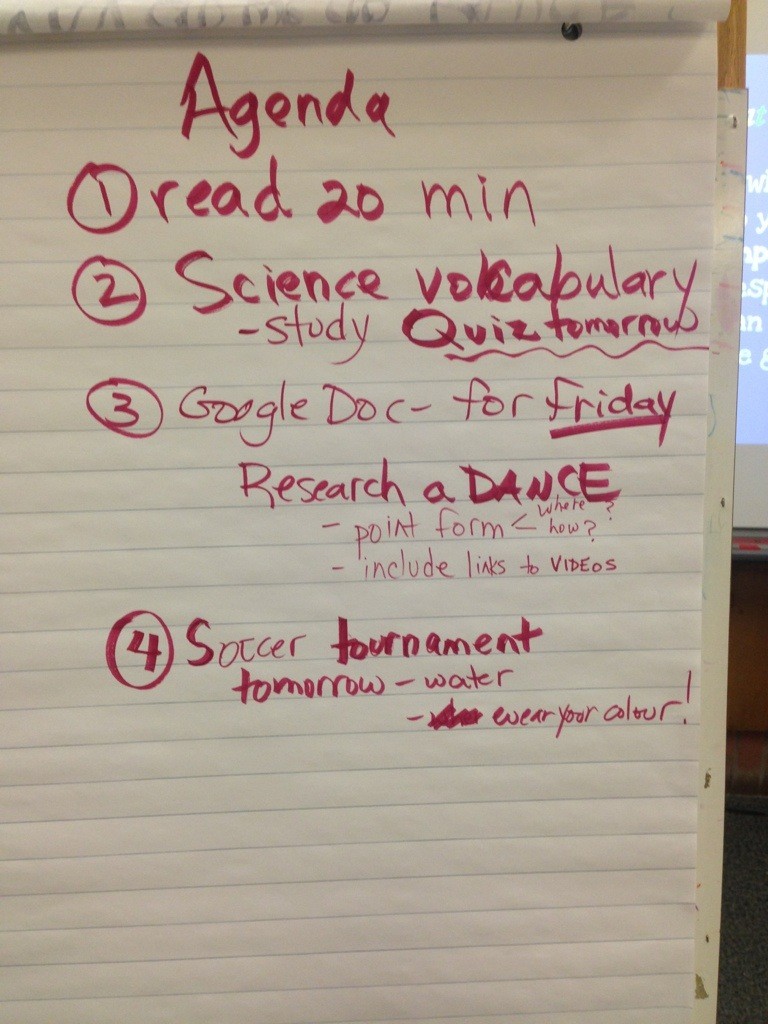 Agenda
① read 20 min
② Science vocabulary
-study Quiz tomorrow
③ Google Doc- for friday
Research a DANCE
- point form < where?
how?
- include links to VIDEOS
④ Soccer tournament
tomorrow - water
- wear your colour!